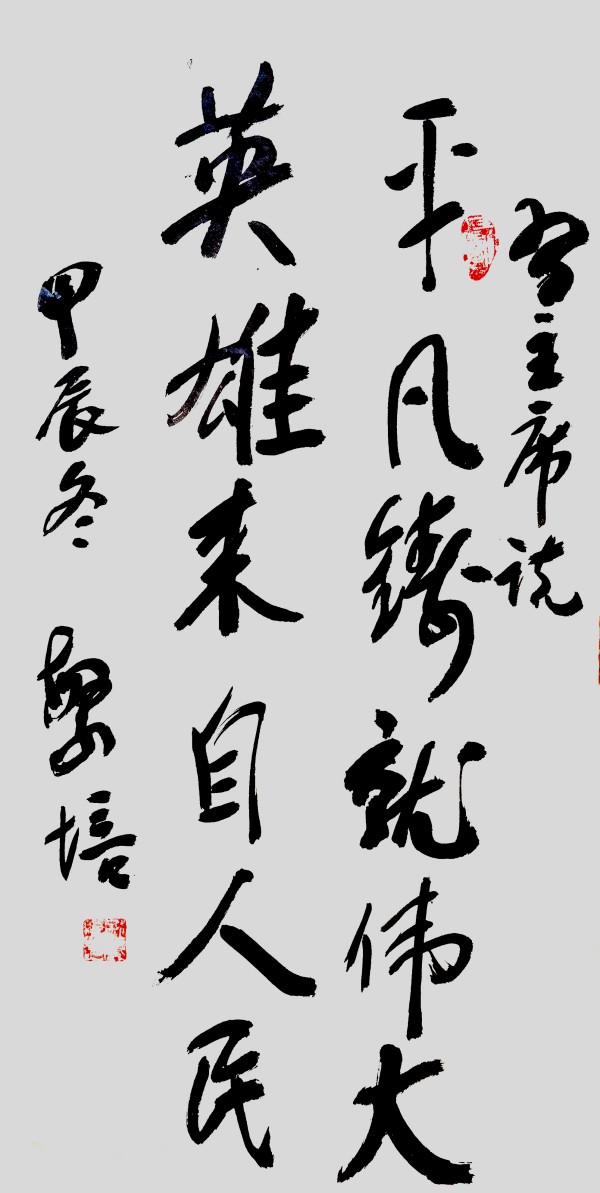 习主席说
平凡铸就伟大
英雄来自人民
甲辰冬
培